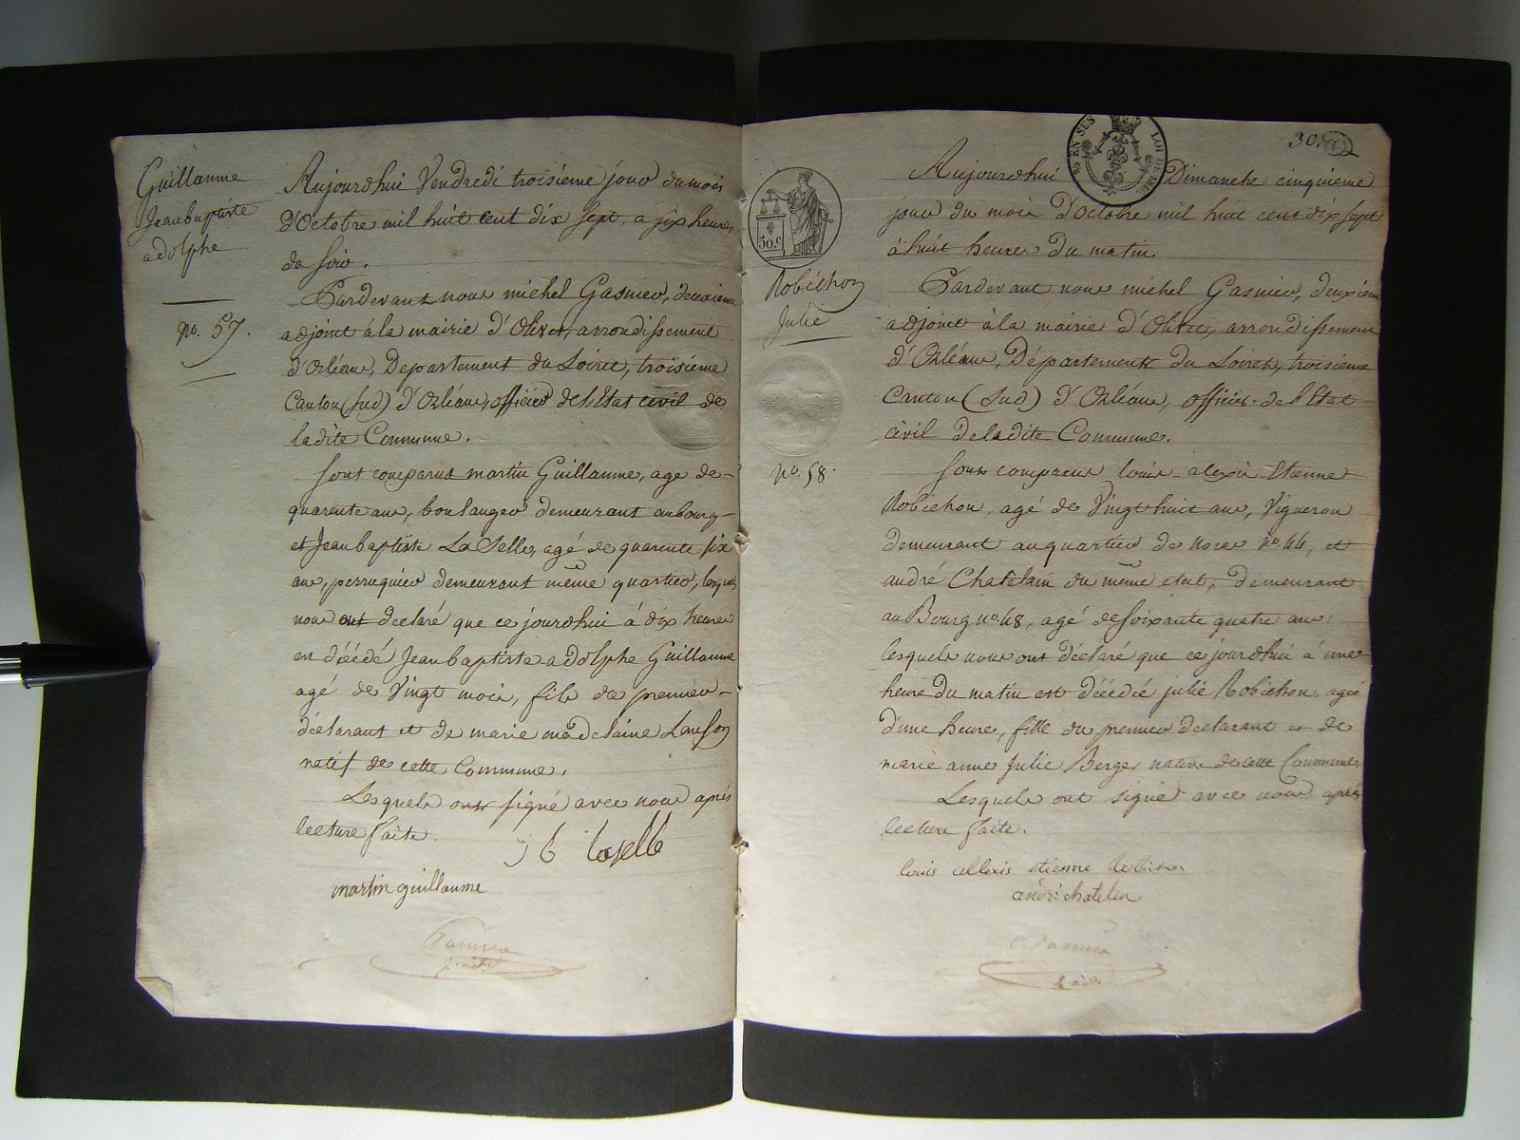 Guillaume
Jean baptiste
adolphe
no. 57.
Aujourdhui Vendredi troisieme jour du mois
d'Octobre mil huit cent dix sept, a six heures
du soir.
Pardevant nous michel Gasnier, deuxieme
adjoint à la mairie d'Olivet, arrondissement
d'Orléans, Departement du Loiret, troisième
Canton (Sud) d'Orléans, officier de l'Etat civil de
ladite Commune.
Sont comparus martin Guillaume, age de
quarente ans, boulanger demeurant au bourg
et Jean baptiste La Selle, agé de quarente six
ans, perruquier demeurant même quartier, lesquels
nous ont declaré que ce jourdhui à dix heures
est décédé Jean baptiste adolphe Guillaume
agé de Vingt mois, fils de premier
déclarant et de marie madelaine
natif de cette Commune.
Lesquels ont signé avec nous après
lecture faite.
j b laselle
martin guillaume
Gasnier
30.
50.c
Robichon
Julie
no. 58.
Aujourdhui Dimanche cinquieme
jour du mois d'Octobre mil huit cent dix sept
à huit heures du matin.
Pardevant nous michel Gasnier, deuxieme
adjoint à la mairie d'Olivet, arrondissement
d'Orléans, Département du Loiret, troisieme
Canton (Sud) d'Orléans, officier de l'Etat
civil de ladite Commune.
Sont comparus louis alexis Etienne
Robichon, agé de Vingt huit ans, Vigneron
demeurant au quartier de no 44, et
andré Chatelain du même etat, demeurant
au Bourg no 48, agé de soixante quatre ans
lesquels nous ont déclaré que ce jourdhui a une
heure du matin est décédée julie Robichon, agée
d'une heure, fille du premier declarant et de
marie anne Julie Berger native de cette Commune
Lesquels ont signé avec nous après
lecture faite.
louis allexis etienne Robichon
andré chatelin
Gasnier